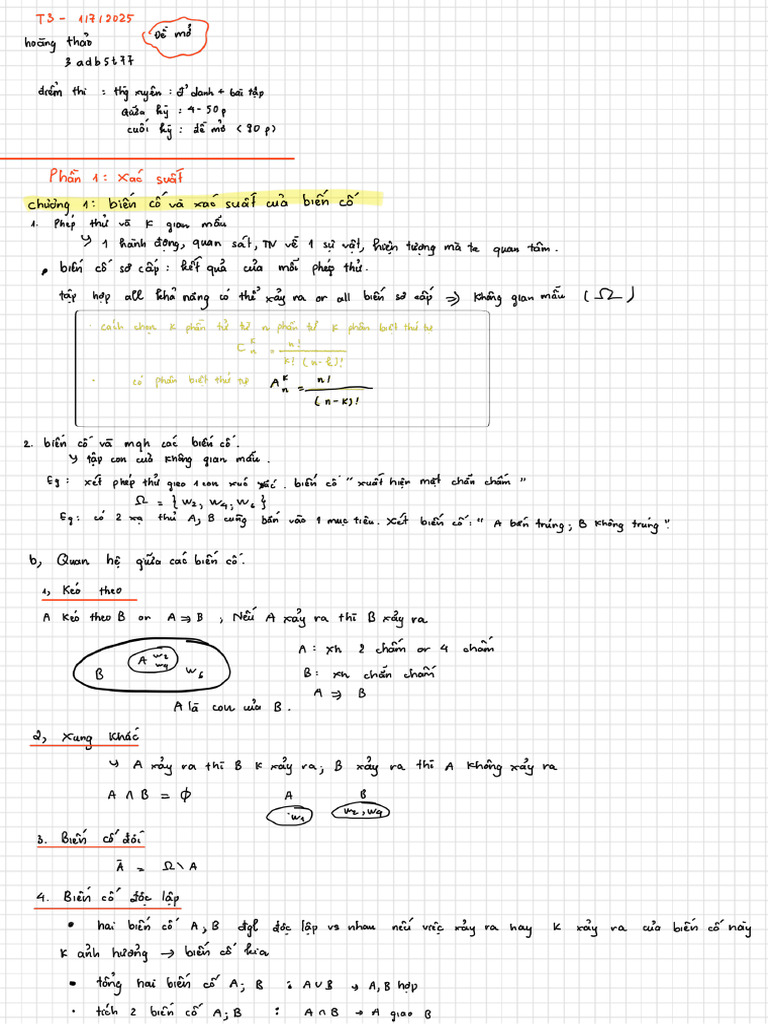 T3 - 1/7/2025
Đề mở
hoàng thảo
3adb5t77
điểm thi : thg xuyên : đ' danh + bài tập
Giữa kỳ : 4-50p
cuối kỳ : đề mở (90p)
Phần 1: Xác suất
chương 1: biến cố và xác suất của biến cố
1. Phép thử và k gian mẫu
↳ 1 hành động, quan sát, TN về 1 sự vật, hiện tượng mà ta quan tâm.
• biến cố sơ cấp : kết quả của mỗi phép thử.
tập hợp all khả năng có thể xảy ra or all biến sơ cấp => không gian mẫu (Ω)
· cách chọn k phần tử từ n phần tử k phân biệt thứ tự
C_n^k = n! / k!(n-k)!
· có phân biệt thứ tự A_n^k = n! / (n-k)!
2. biến cố và mqh các biến cố.
↳ tập con của không gian mẫu.
Eg : xét phép thử gieo 1 con xúc xắc. biến cố "xuất hiện mặt chẵn chấm"
Ω = {w₂, w₄, w₆}
Eg: có 2 xạ thủ A, B cùng bắn vào 1 mục tiêu. Xét biến cố: "A bắn trúng; B không trúng".
b, Quan hệ giữa các biến cố.
1, Kéo theo
A kéo theo B or A => B , Nếu A xảy ra thì B xảy ra
A w₂ w₄ B w₆
A : xh 2 chấm or 4 chấm
B : xh chẵn chấm
A => B
A là con của B.
2, Xung khắc
↳ A xảy ra thì B k xảy ra; B xảy ra thì A không xảy ra
A ∩ B = ∅ A B
·w₁ w₂, w₄
3. Biến cố đối
Ā = Ω \ A
4. Biến cố độc lập
• hai biến cố A, B đgl độc lập vs nhau nếu việc xảy ra hay k xảy ra của biến cố này
k ảnh hưởng → biến cố kia
• tổng hai biến cố A; B : A∪B ↳ A, B hợp
• tích 2 biến cố A; B : A∩B → A giao B